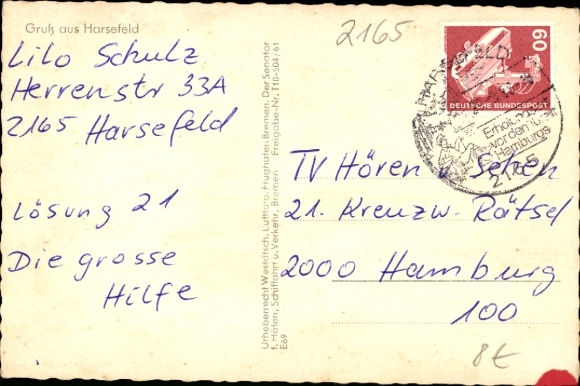 Gruß aus Harsefeld
2165
Lilo Schulz
Herrenstr 33A
2165 Harsefeld
Lösung 21
Die grosse
Hilfe
Urheberrecht Westdtsch. Luftfoto, Flughafen Bremen. Der Senator
f. Häfen, Schiffahrt u. Verkehr, Bremen Freigabe-Nr. T10-504/61
E69
60
DEUTSCHE BUNDESPOST
Hamburgs
TV Hören u. Sehen
21. Kreuzw. Rätsel
2000 Hamburg
100
8€